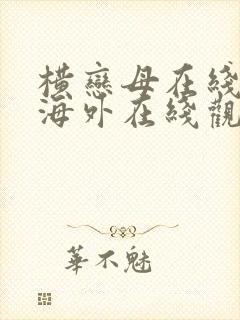 橫戀母在綫
海外在綫觀
華不魅